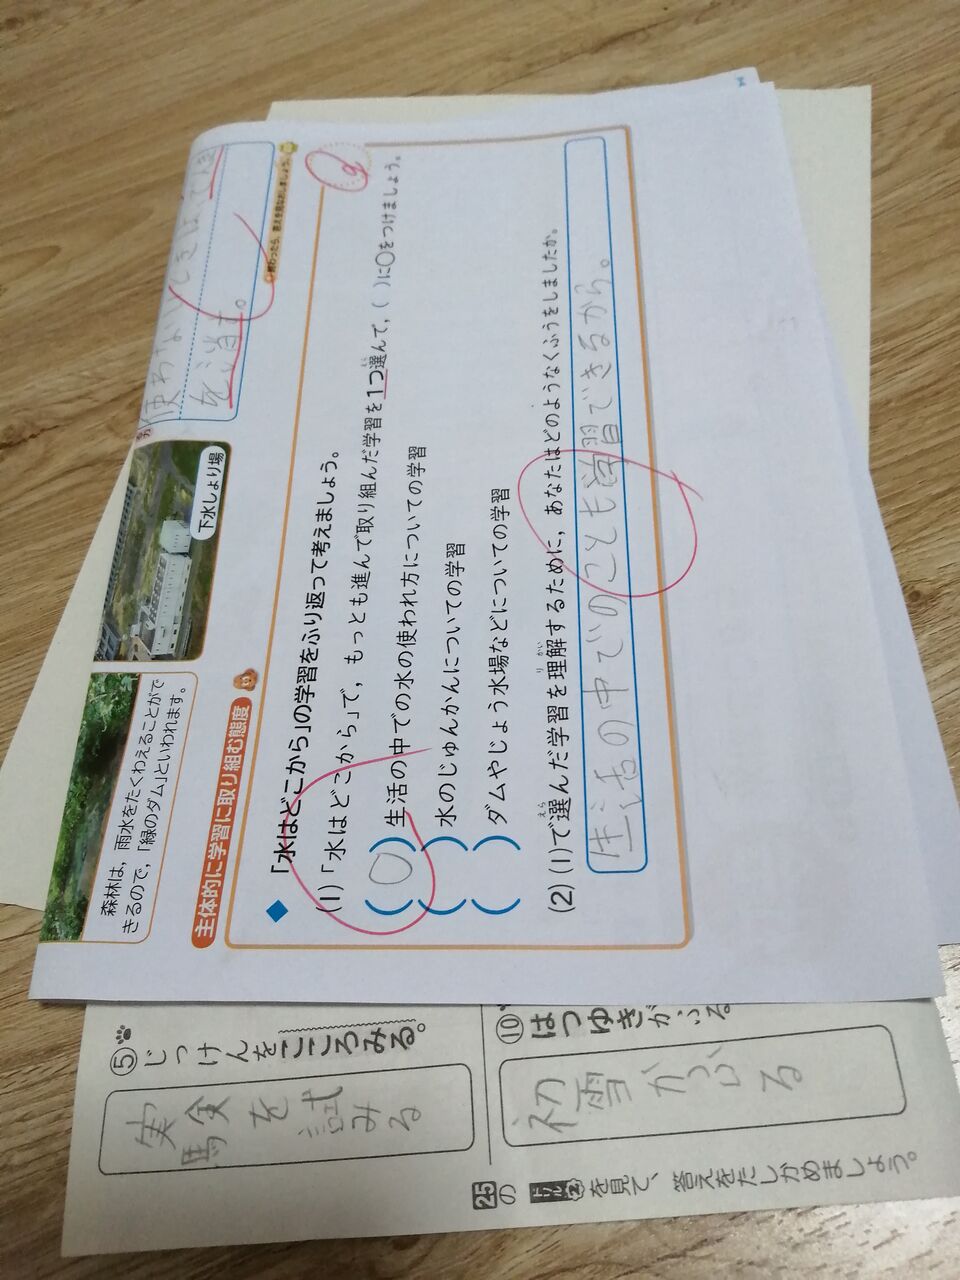 使わないときはで
を消す。
終わったら、答えを見なおしましょう。
下水しょり場
森林は，雨水をたくわえることがで
きるので，「緑のダム」といわれます。
主体的に学習に取り組む態度
「水はどこから」の学習をふり返って考えましょう。
(1)「水はどこから」で，もっとも進んで取り組んだ学習を1つ選んで，( )に○をつけましょう。
(○)生活の中での水の使われ方についての学習
( )水のじゅんかんについての学習
( )ダムやじょう水場などについての学習
(2) (1)で選んだ学習を理解するために，あなたはどのようなくふうをしましたか。
生活の中でのことも学習できるから。
⑤じっけんをこころみる。
実験を試みる
⑩はつゆきがふる。
初雪がふる
25のドリル②を見て、答えをたしかめましょう。